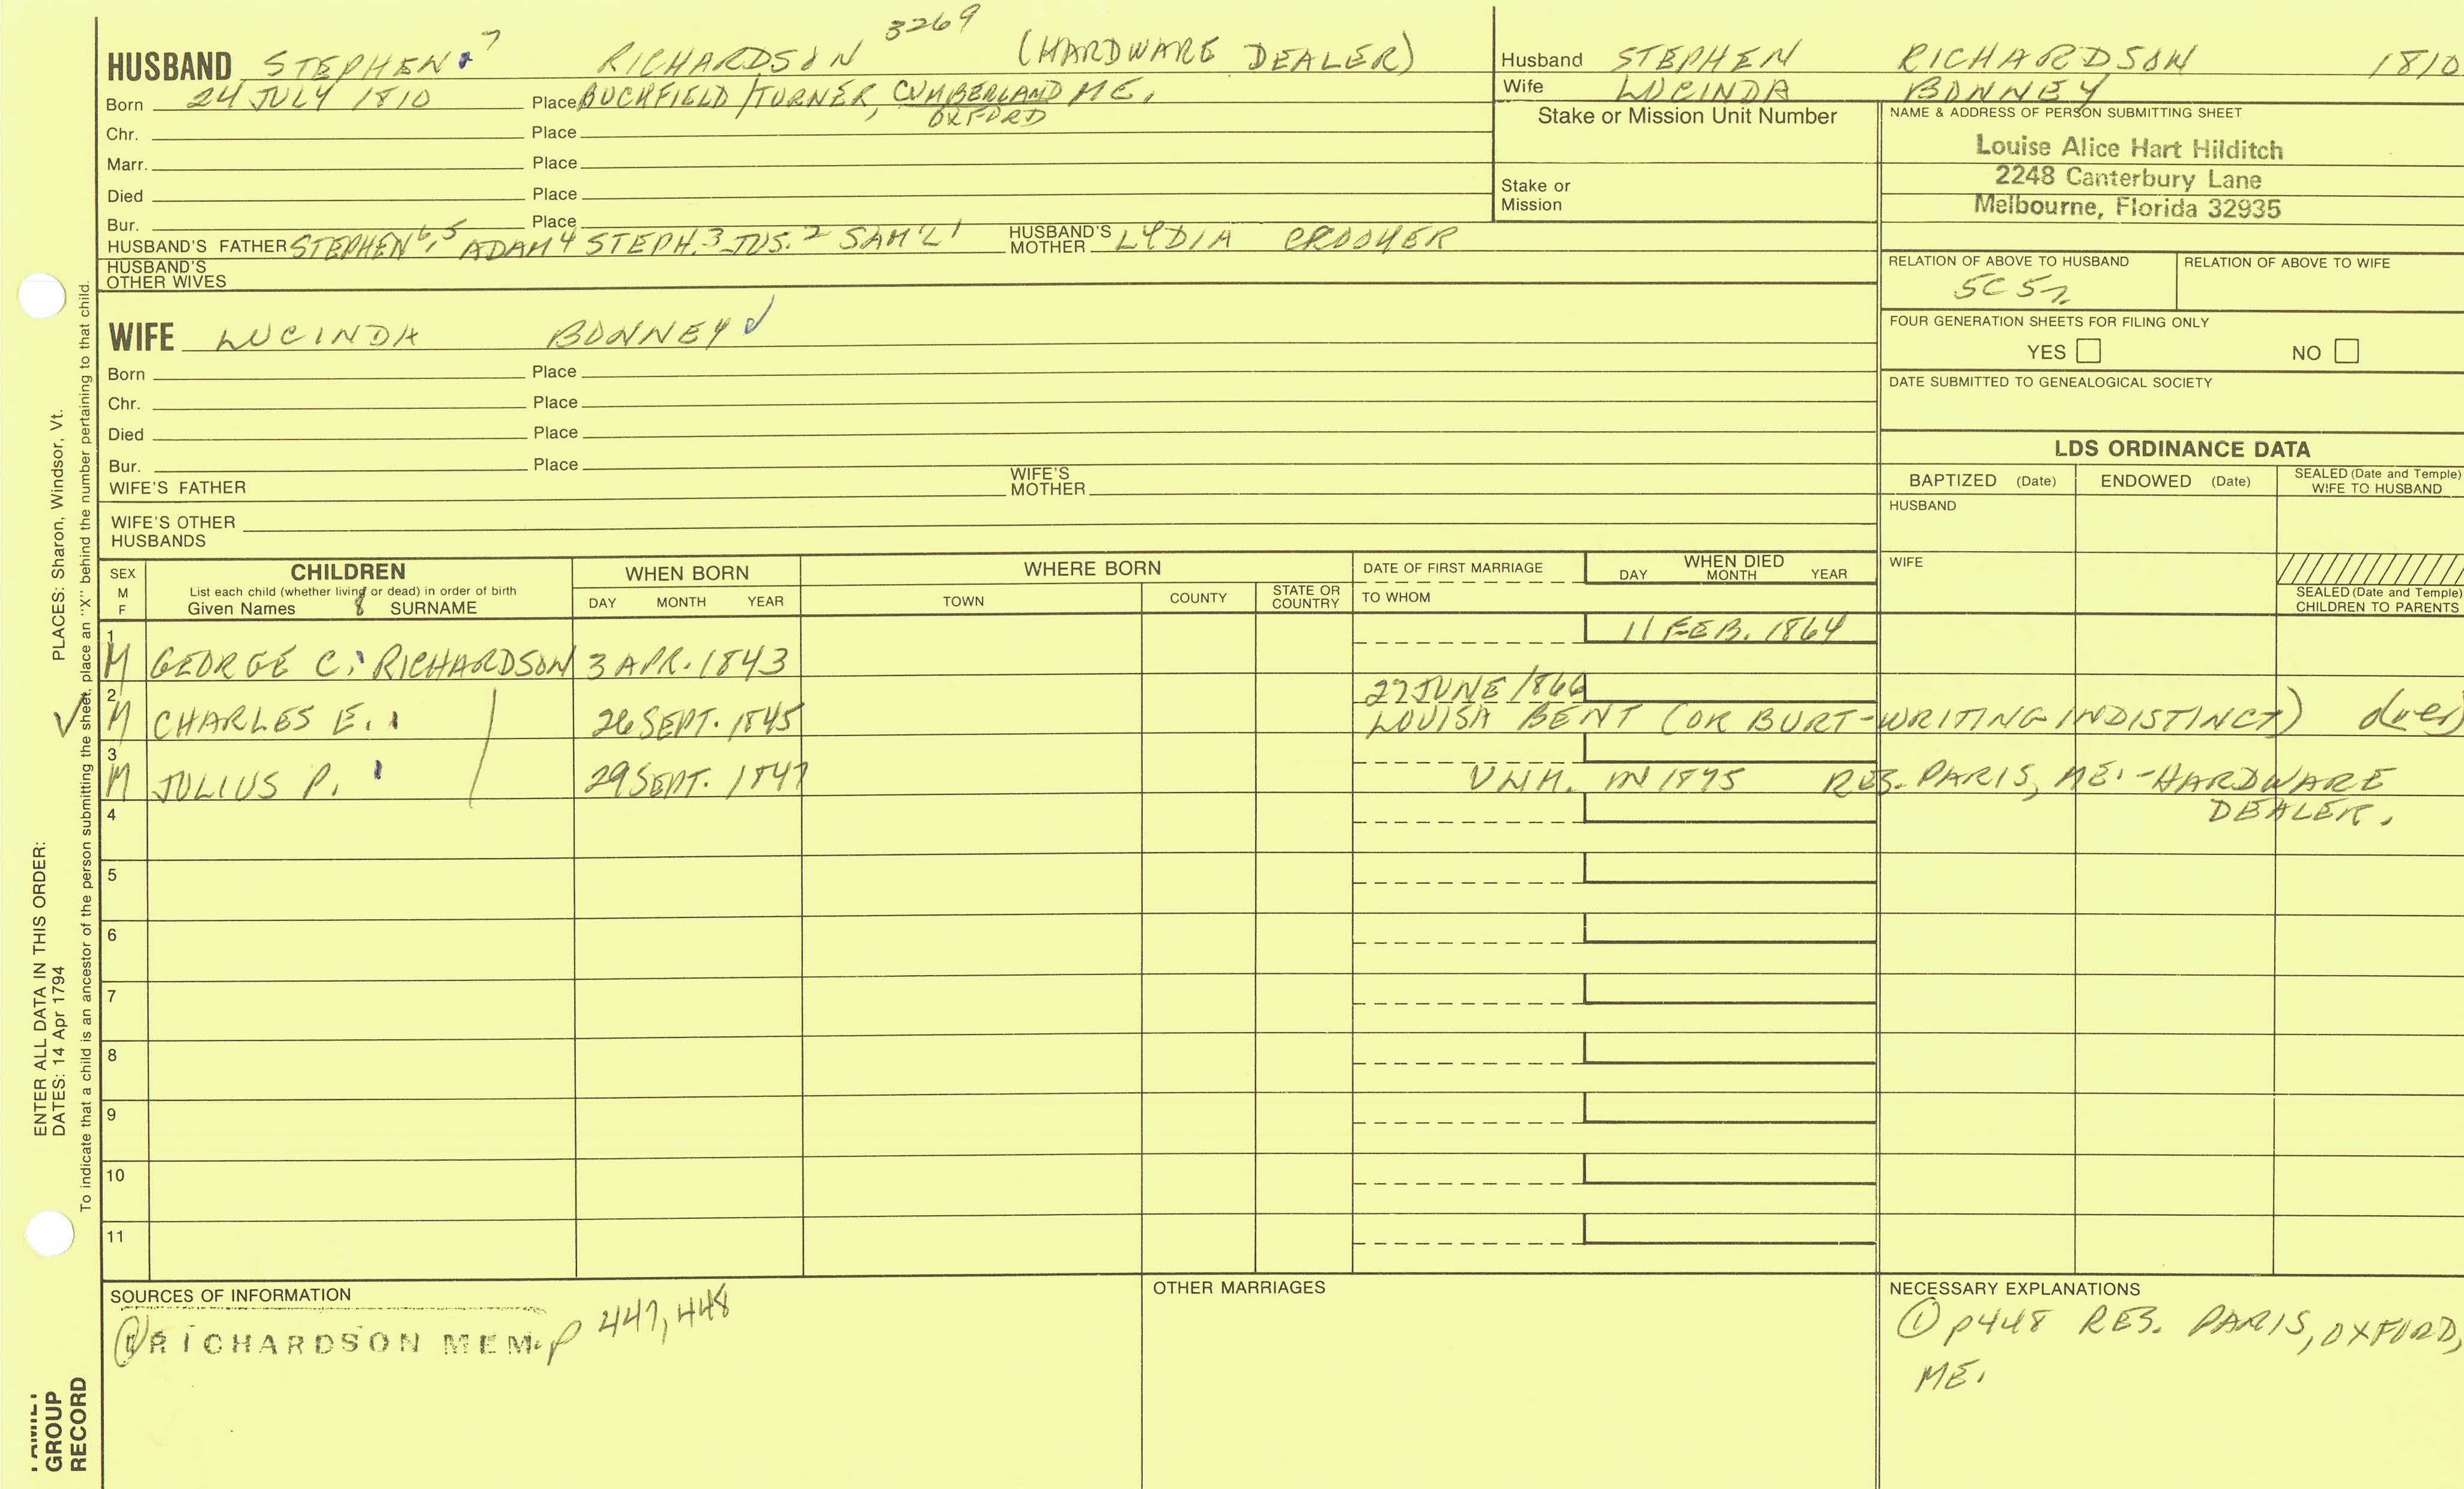 3269
HUSBAND STEPHEN 7 RICHARDSON (HARDWARE DEALER)
Born 24 JULY 1810 Place BUCKFIELD/TURNER, CUMBERLAND ME.
OXFORD
Chr. Place
Marr. Place
Died Place
Bur. Place
HUSBAND'S FATHER STEPHEN 6, 5 ADAM 4 STEPH. 3 JOS. 2 SAM'L 1 HUSBAND'S MOTHER LYDIA CROOKER
HUSBAND'S OTHER WIVES
Husband STEPHEN RICHARDSON 1810
Wife LUCINDA BONNEY
Stake or Mission Unit Number
Stake or Mission
NAME & ADDRESS OF PERSON SUBMITTING SHEET
Louise Alice Hart Hilditch
2248 Canterbury Lane
Melbourne, Florida 32935
RELATION OF ABOVE TO HUSBAND RELATION OF ABOVE TO WIFE
5C 5r
FOUR GENERATION SHEETS FOR FILING ONLY
YES NO
DATE SUBMITTED TO GENEALOGICAL SOCIETY
WIFE LUCINDA BONNEY ✓
Born Place
Chr. Place
Died Place
Bur. Place
WIFE'S FATHER WIFE'S MOTHER
WIFE'S OTHER HUSBANDS
LDS ORDINANCE DATA
BAPTIZED (Date) ENDOWED (Date) SEALED (Date and Temple) WIFE TO HUSBAND
HUSBAND
WIFE
SEALED (Date and Temple) CHILDREN TO PARENTS
SEX M F
CHILDREN
List each child (whether living or dead) in order of birth
Given Names 8 SURNAME
WHEN BORN
DAY MONTH YEAR
WHERE BORN
TOWN COUNTY STATE OR COUNTRY
DATE OF FIRST MARRIAGE
TO WHOM
WHEN DIED
DAY MONTH YEAR
1 11 FEB. 1864
M GEORGE C. RICHARDSON 3 APR. 1843
2 27 JUNE 1866
✓ M CHARLES E. 26 SEPT. 1845 LOUISA BENT (OR BURT-WRITING INDISTINCT) over
3
M JULIUS P. 29 SEPT. 1847 UNM. IN 1875 RES. PARIS, ME.-HARDWARE
DEALER.
4
5
6
7
8
9
10
11
SOURCES OF INFORMATION
① RICHARDSON MEM. p 447, 448
OTHER MARRIAGES
NECESSARY EXPLANATIONS
① p448 RES. PARIS, OXFORD,
ME.
PLACES: Sharon, Windsor, Vt.
ENTER ALL DATA IN THIS ORDER:
DATES: 14 Apr 1794
To indicate that a child is an ancestor of the person submitting the sheet, place an "X" behind the number pertaining to that child.
FAMILY
GROUP
RECORD